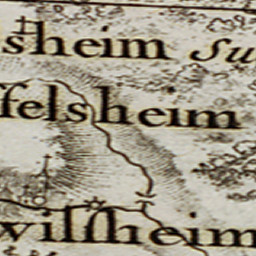 sheim Su
ffelsheim
wilſheim